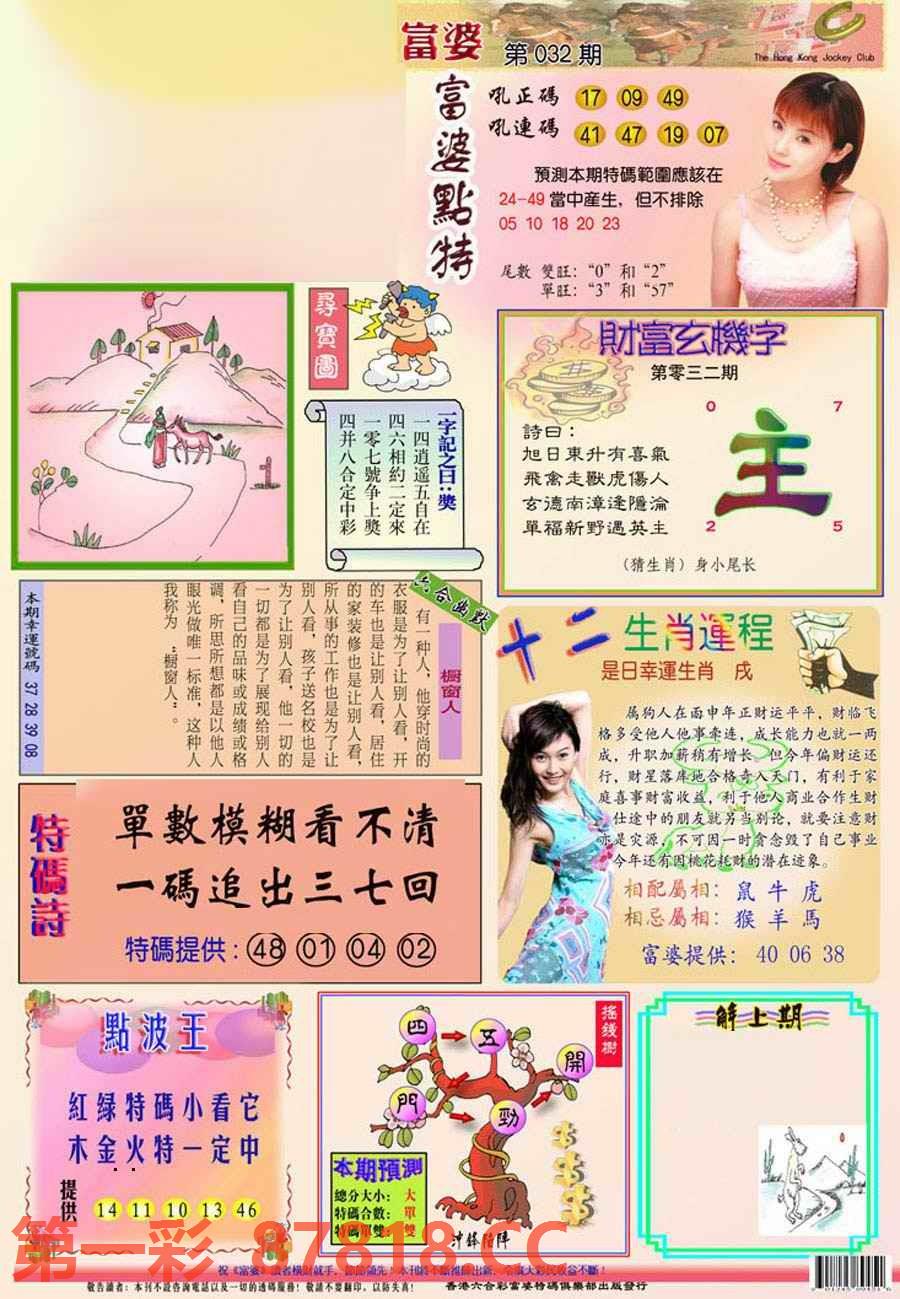 富婆 第032期
The Hong Kong Jockey Club
富婆點特
吼正碼 17 09 49
吼連碼 41 47 19 07
預測本期特碼範圍應該在
24-49當中産生，但不排除
05 10 18 20 23
尾數 雙旺：“0”和“2”
單旺：“3”和“57”
尋寶圖
一字記之曰：獎
一四逍遥五自在
四六相約二定來
一零七號争上獎
四并八合定中彩
財富玄機字
第零三二期
詩曰：
旭日東升有喜氣
飛禽走獸虎傷人
玄德南漳逢隱淪
單福新野遇英主
0 7
主
2 5
（猜生肖）身小尾长
六合幽默
橱窗人
有一种人，他穿时尚的
衣服是为了让别人看，开
的车也是让别人看，居住
的家装修也是让别人看，
所从事的工作也是为了让
别人看，孩子送名校也是
为了让别人看，他一切的
一切都是为了展现给别人
看自己的品味或成绩或格
调，所思所想都是以他人
眼光做唯一标准，这种人
我称为“橱窗人”。
本期幸運號碼 37 28 39 08
十二生肖運程
是日幸運生肖 戌
属狗人在面申年正财运平平，财临飞
格多受他人他事牵连，成长能力也就一两
成，升职加薪稍有增长。但今年偏财运还
行，财星落库地合格奇入天门，有利于家
庭喜事财富收益，利于他人商业合作生财
仕途中的朋友就另当别论，就要注意财
亦是灾源，不可因一时贪念毁了自己事业
今年还有因桃花耗财的潜在迹象。
相配屬相：鼠 牛 虎
相忌屬相：猴 羊 馬
富婆提供：40 06 38
特碼詩
單數模糊看不清
一碼追出三七回
特碼提供：48 01 04 02
點波王
紅緑特碼小看它
木金火特一定中
提供 14 11 10 13 46
搖錢樹
四 五 開
門 勁
本期預測
總分大小：大
特碼合數：單
特碼單雙：雙
冲鋒陷陣
解上期
第一彩 87818.CC
敬告讀者：本刊不設咨詢電話以及一切的透碼服務！敬請不要翻印，以防失真！
香港六合彩富婆特碼俱樂部出版發行